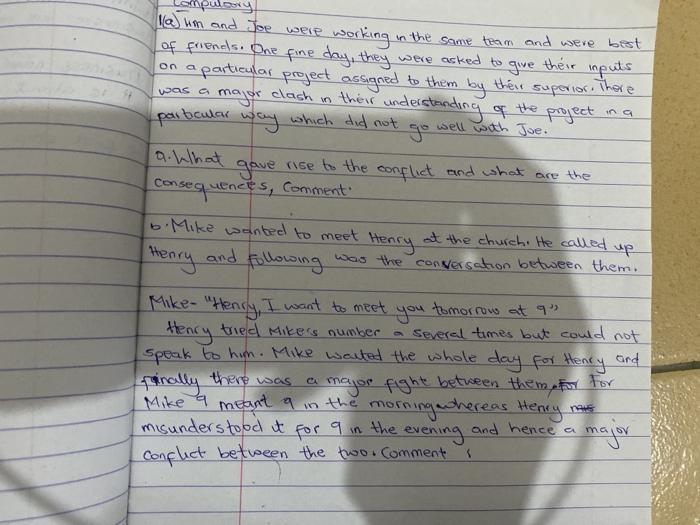 Compulsory
1(a) Jim and Joe were working in the same team and were best
of friends. One fine day, they were asked to give their inputs
on a particular project assigned to them by their superior. There
was a major clash in their understanding of the project in a
particular way which did not go well with Joe.
a. What gave rise to the conflict and what are the
consequences, Comment.
b. Mike wanted to meet Henry at the church. He called up
Henry and following was the conversation between them.
Mike- "Henry, I want to meet you tomorrow at 9"
Henry tried Mike's number a several times but could not
speak to him. Mike waited the whole day for Henry and
finally there was a major fight between them. For
Mike 9 meant 9 in the morning whereas Henry
misunderstood it for 9 in the evening and hence a major
conflict between the two. Comment